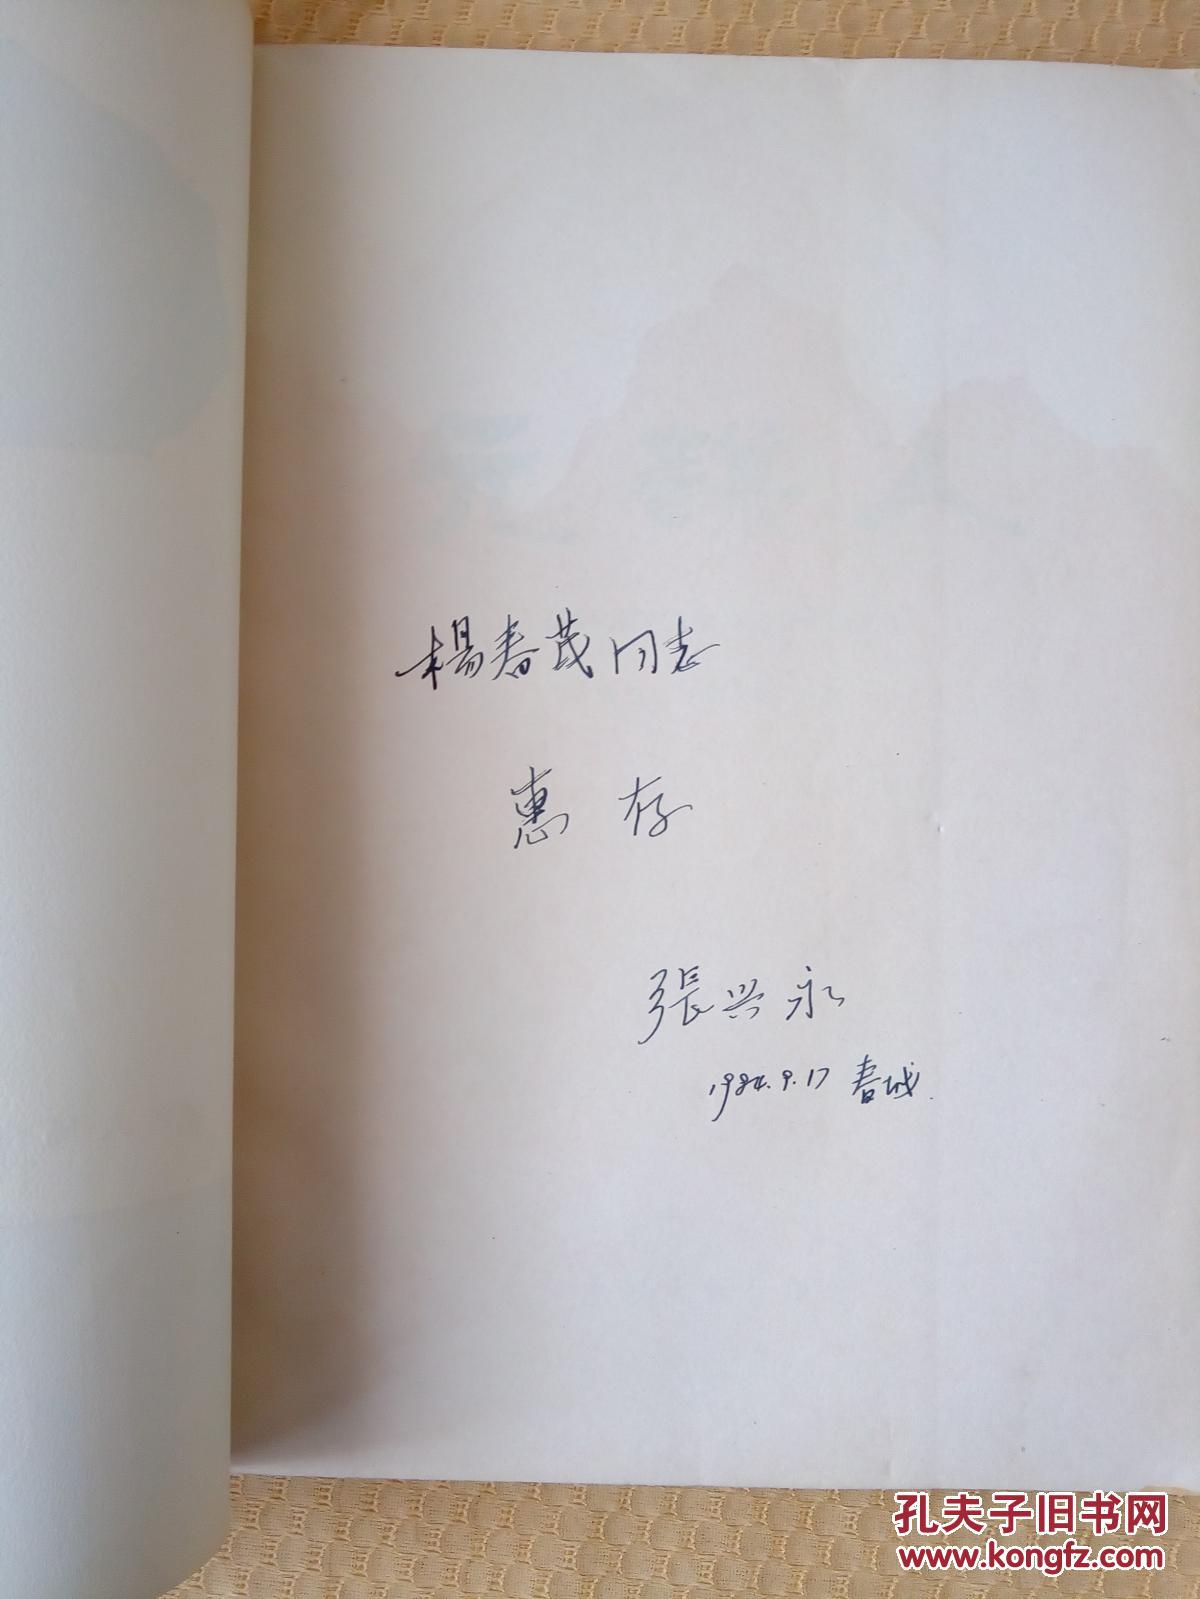 楊春茂同志
惠存
張兴永
1984.9.17 春城.
孔夫子旧书网
www.kongfz.com